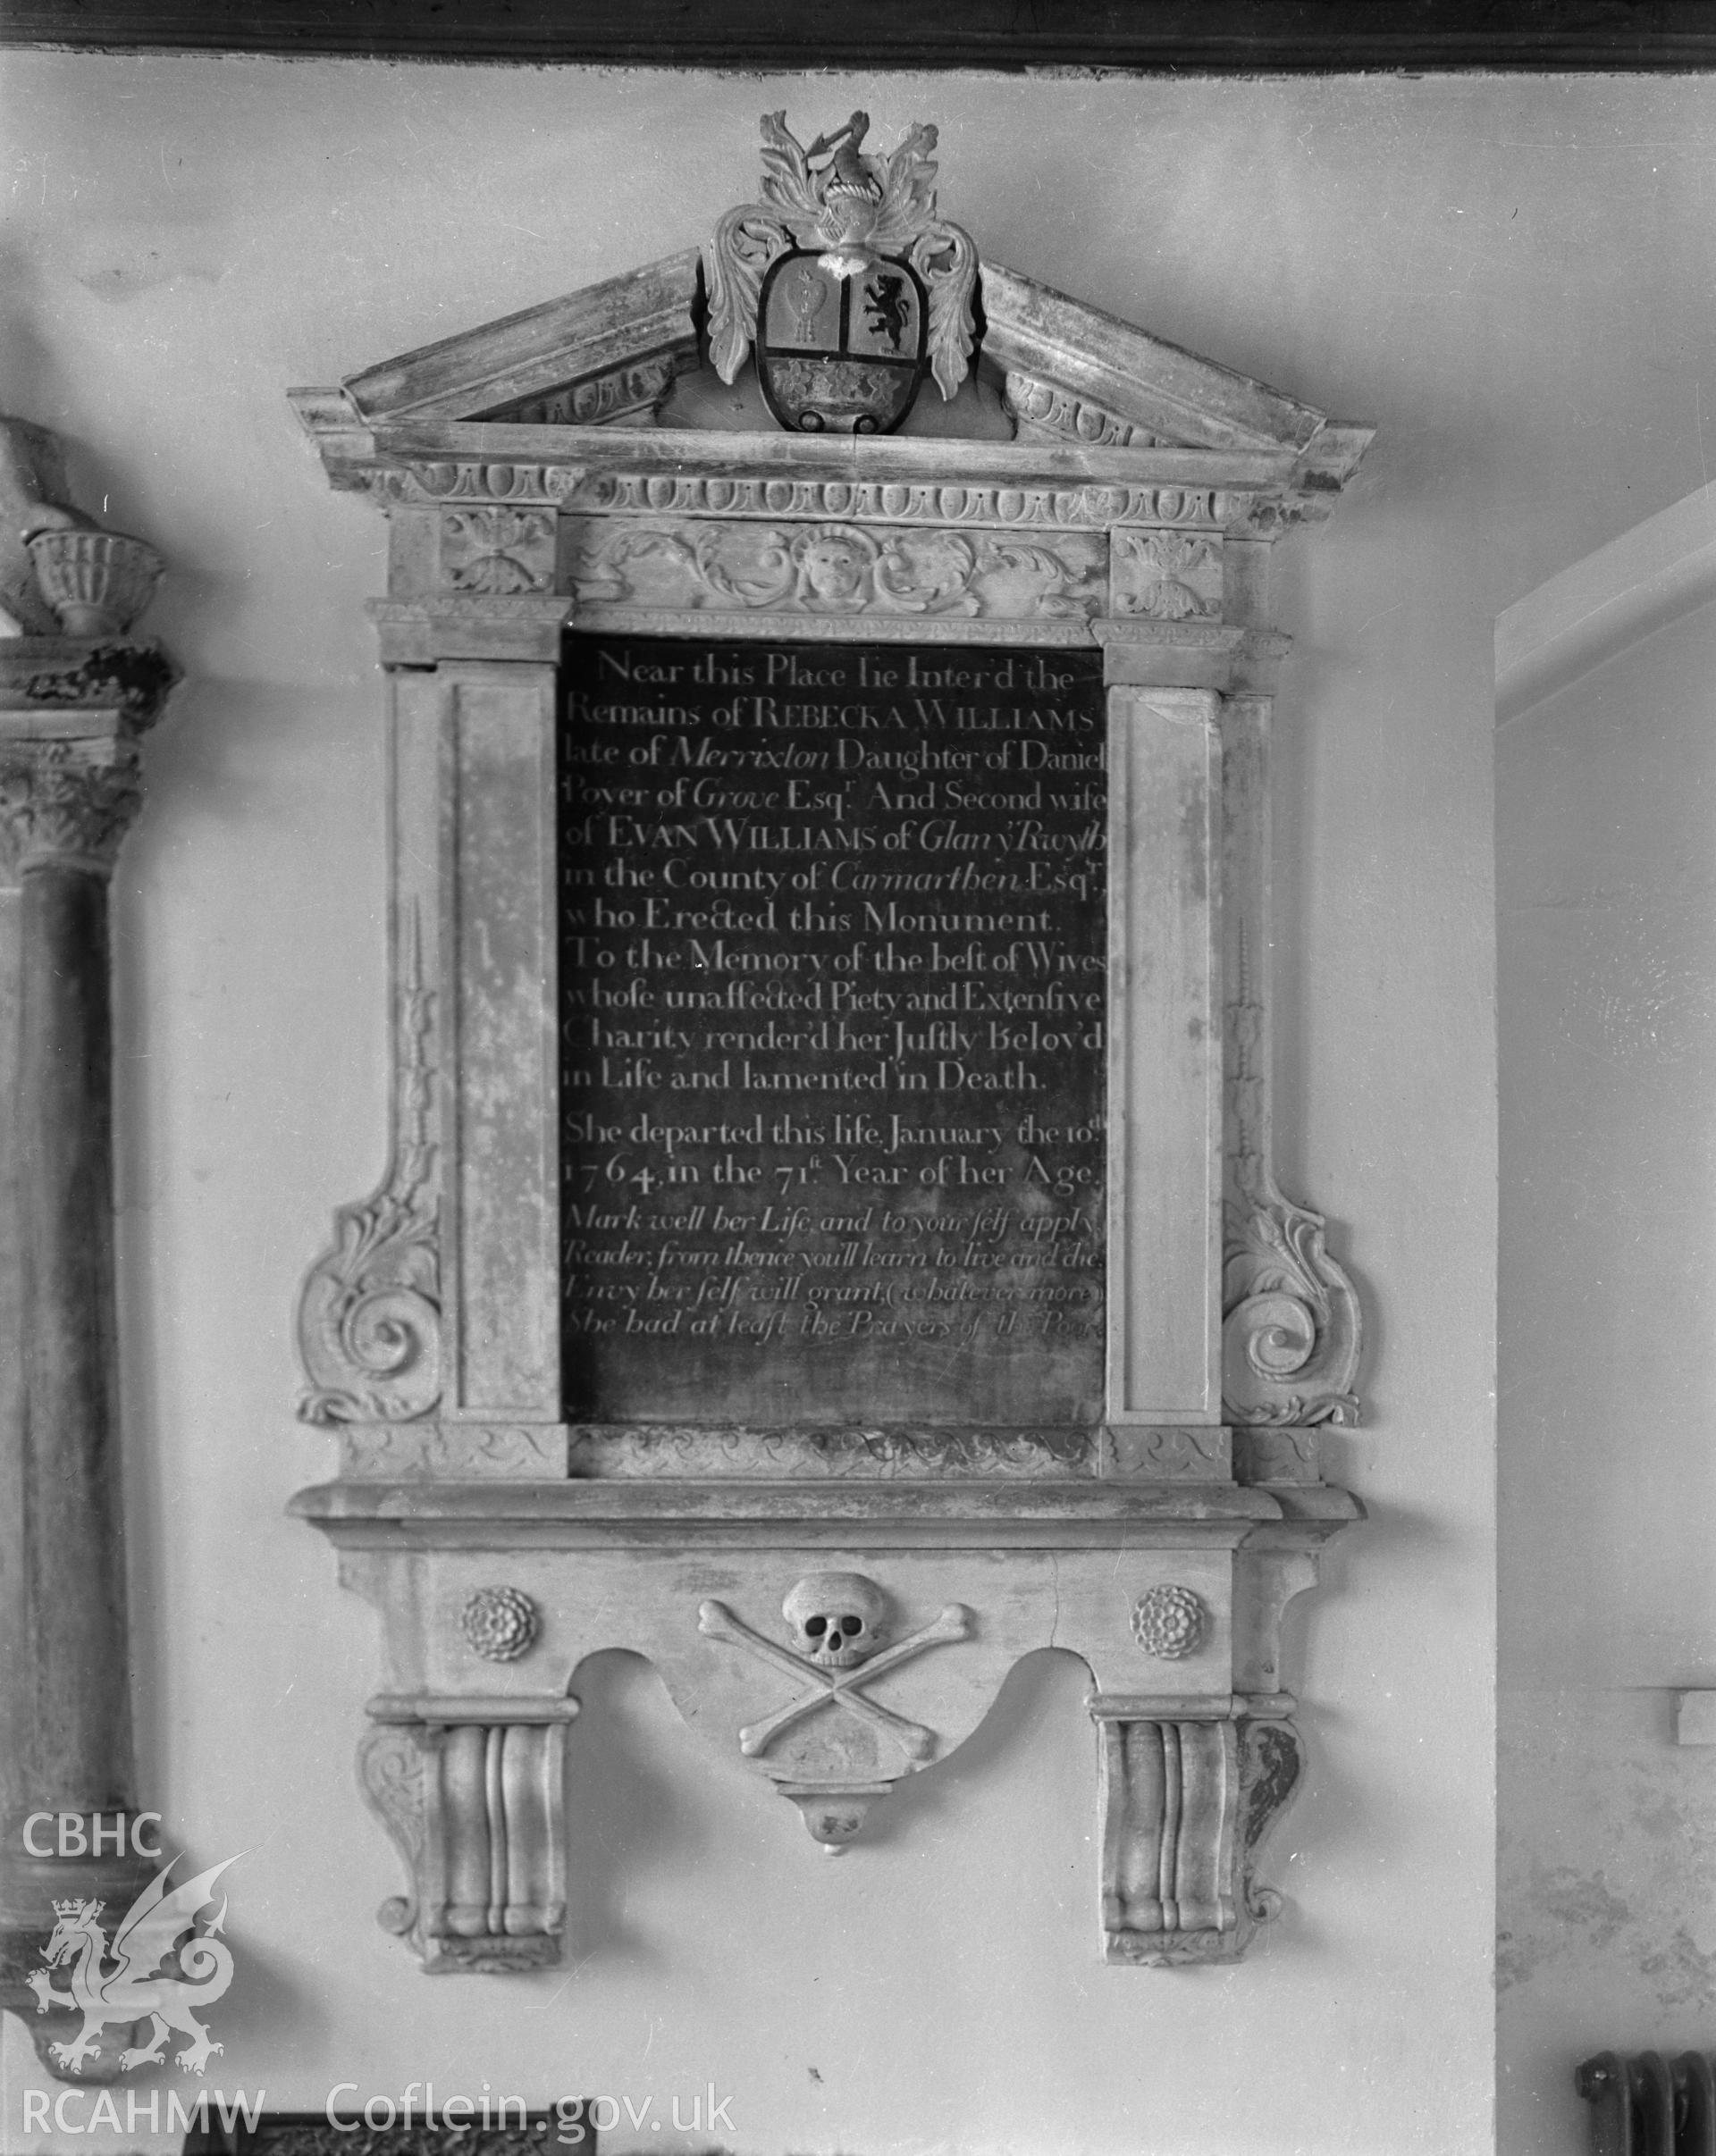 Near this Place lie Inter'd the
Remains of REBECKA WILLIAMS
late of Merrixton Daughter of Daniel
Poyer of Grove Esqr. And Second wife
of EVAN WILLIAMS of Glan y'Rwyth
in the County of Carmarthen Esqr.,
who Erected this Monument.
To the Memory of the beſt of Wives
whoſe unaffected Piety and Extenſive
Charity render'd her Juſtly Belov'd
in Life and lamented in Death.
She departed this life, January the 10th
1764, in the 71ſt. Year of her Age.
Mark well her Life, and to your ſelf apply,
Reader, from thence you'll learn to live and die.
Envy her ſelf will grant, (whatever more)
She had at leaſt the Prayers of the Poor.
CBHC
RCAHMW Coflein.gov.uk